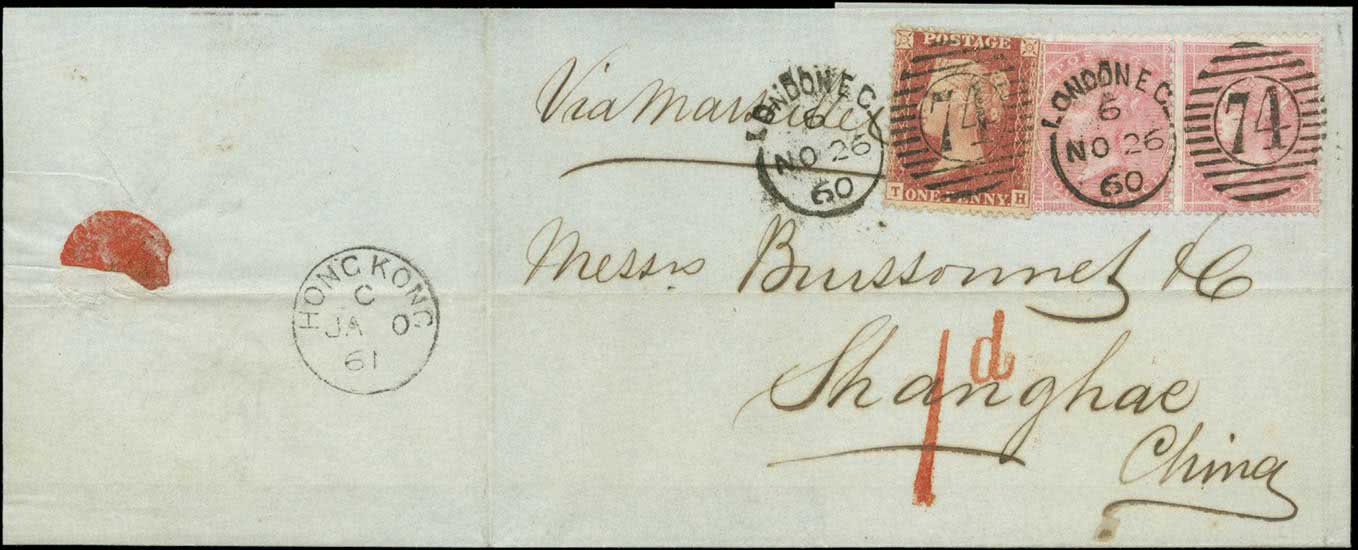 Via Marseilles
LONDON E C
6
NO 26
60
POSTAGE
74
T H
ONE PENNY
LONDON E C
6
NO 26
60
74
Messrs Buissonnet & C
Shanghae
China
1d
HONG KONG
C
JA 0
61